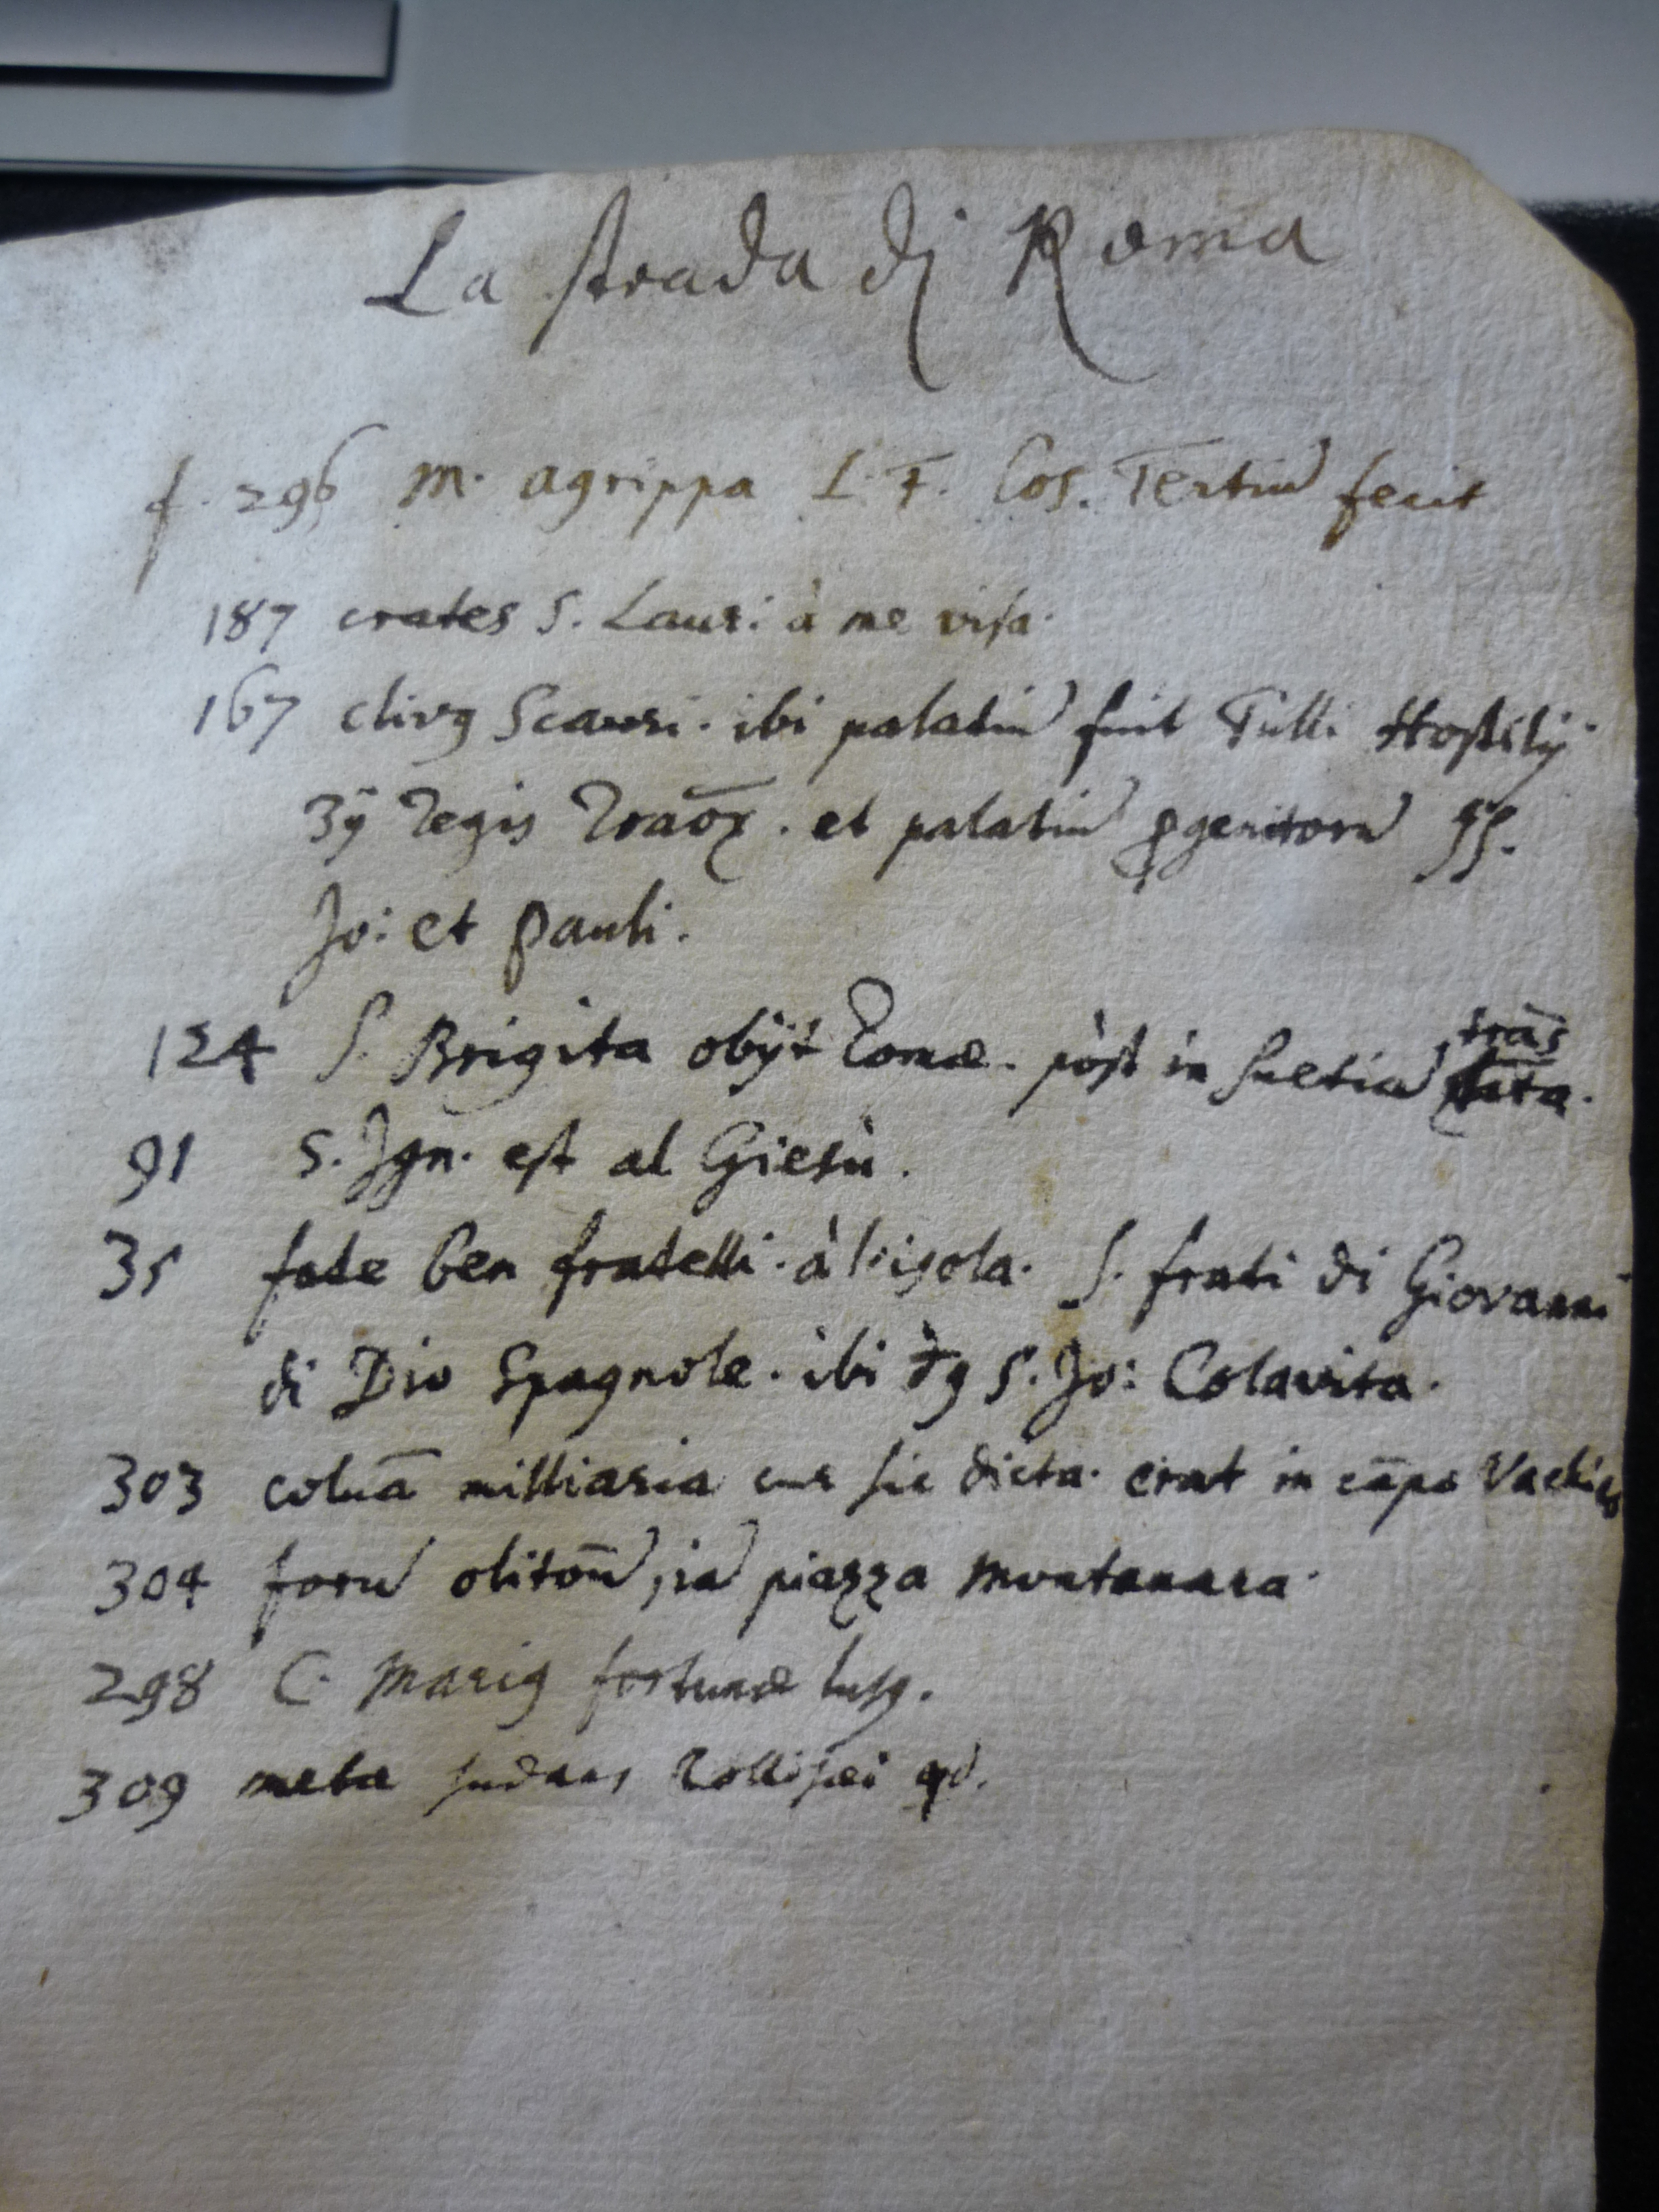 La strada di Roma
f. 296 M. agrippa L. F. Cos. Tertiũ fecit
187 crates S. Laur: à me visa.
167 clivꝰ Scauri. ibi palatiũ fuit Tulli Hostilij
3ij Regis Romāoꝝ. et palatiũ ꝓgenitorũ SS.
Jo: et Pauli.
124 S. Brigita obijt Romæ. pòst in Suetiã trās
lata.
91 S. Ign. est al Giesù.
35 fate ben fratelli. à l'isola. S. frati di Giovanni
di Dio Spagnole. ibi S. Jo: Colavita.
303 coluā milliaria cur sic dicta. erat in cāpo Vachino
304 forũ olitoriũ, iã piazza montanara.
298 C. Mariꝰ fortunæ lusꝰ.
309 meta sudans Collisæi qd.